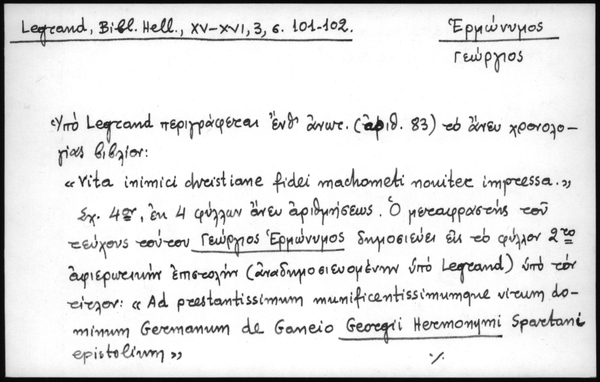 Legrand, Bibl. Hell., XV–XVI, 3, σ. 101-102.
Ἑρμώνυμος
Γεώργιος
Ὑπὸ Legrand περιγράφεται ἔνθ' ἀνωτ. (ἀριθ. 83) τὸ ἄνευ χρονολο-
γίας βιβλίον:
« Vita inimici christiane fidei machometi noviter impressa. »
Σχ. 4ον, ἐκ 4 φύλλων ἄνευ ἀριθμήσεως. Ὁ μεταφραστὴς τοῦ
τεύχους τούτου Γεώργιος Ἑρμώνυμος δημοσιεύει εἰς τὸ φύλλον 2το
ἀφιερωτικὴν ἐπιστολὴν (ἀναδημοσιευομένην ὑπὸ Legrand) ὑπὸ τὸν
τίτλον: « Ad prestantissimum munificentissimumque virum do-
minum Germanum de Ganeio Georgii Hermonymi Spartani
epistolium »
·/.